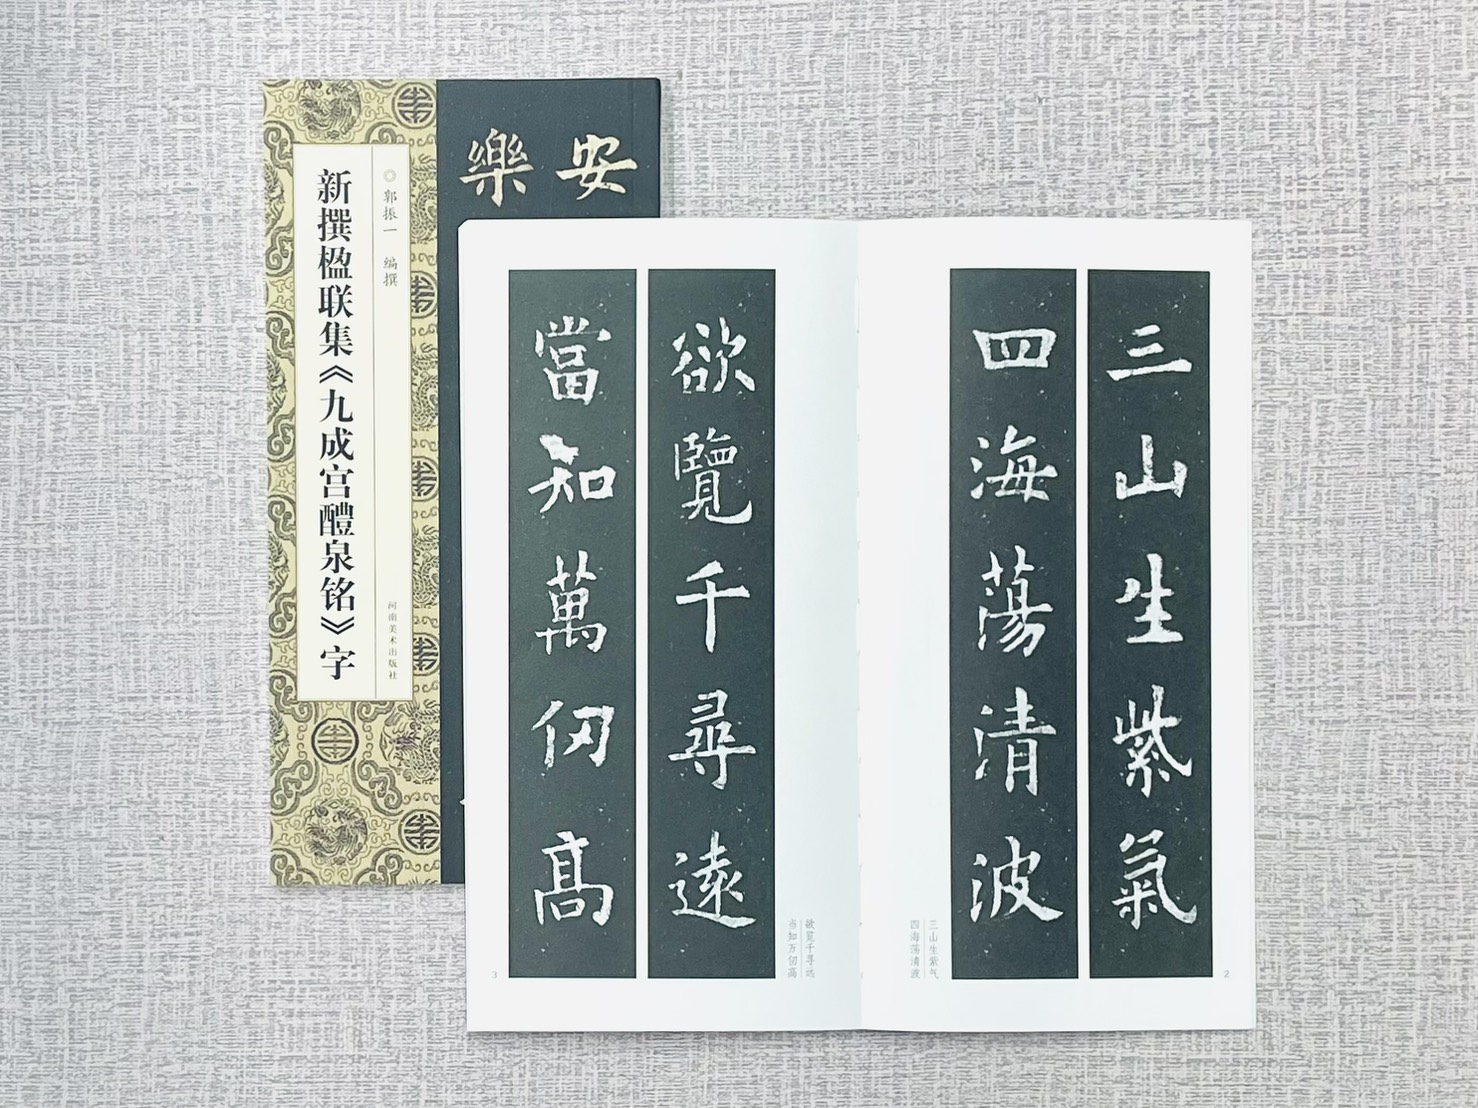 新撰楹联集《九成宫醴泉铭》字
◎郭振一 编撰
河南美术出版社
安
樂
三山生紫氣
四海蕩清波
三山生紫气
四海荡清波
2
欲覽千尋遠
當知萬仞高
欲览千寻远
当知万仞高
3